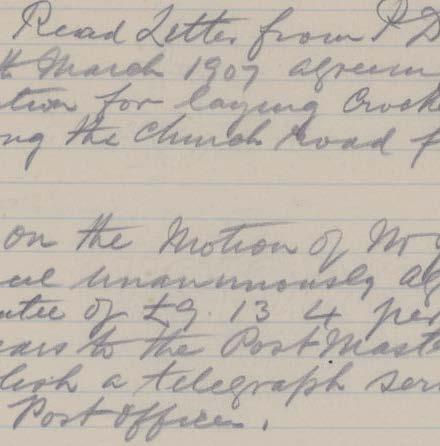 Read Letter from P D
th March 1907 agreein
tion for laying Crock
ng the Church Road f
on the Motion of Mr
cil unanimously ag
ntee of £9. 13 4 per
ears to the Post Maste
lish a telegraph ser
Post office.